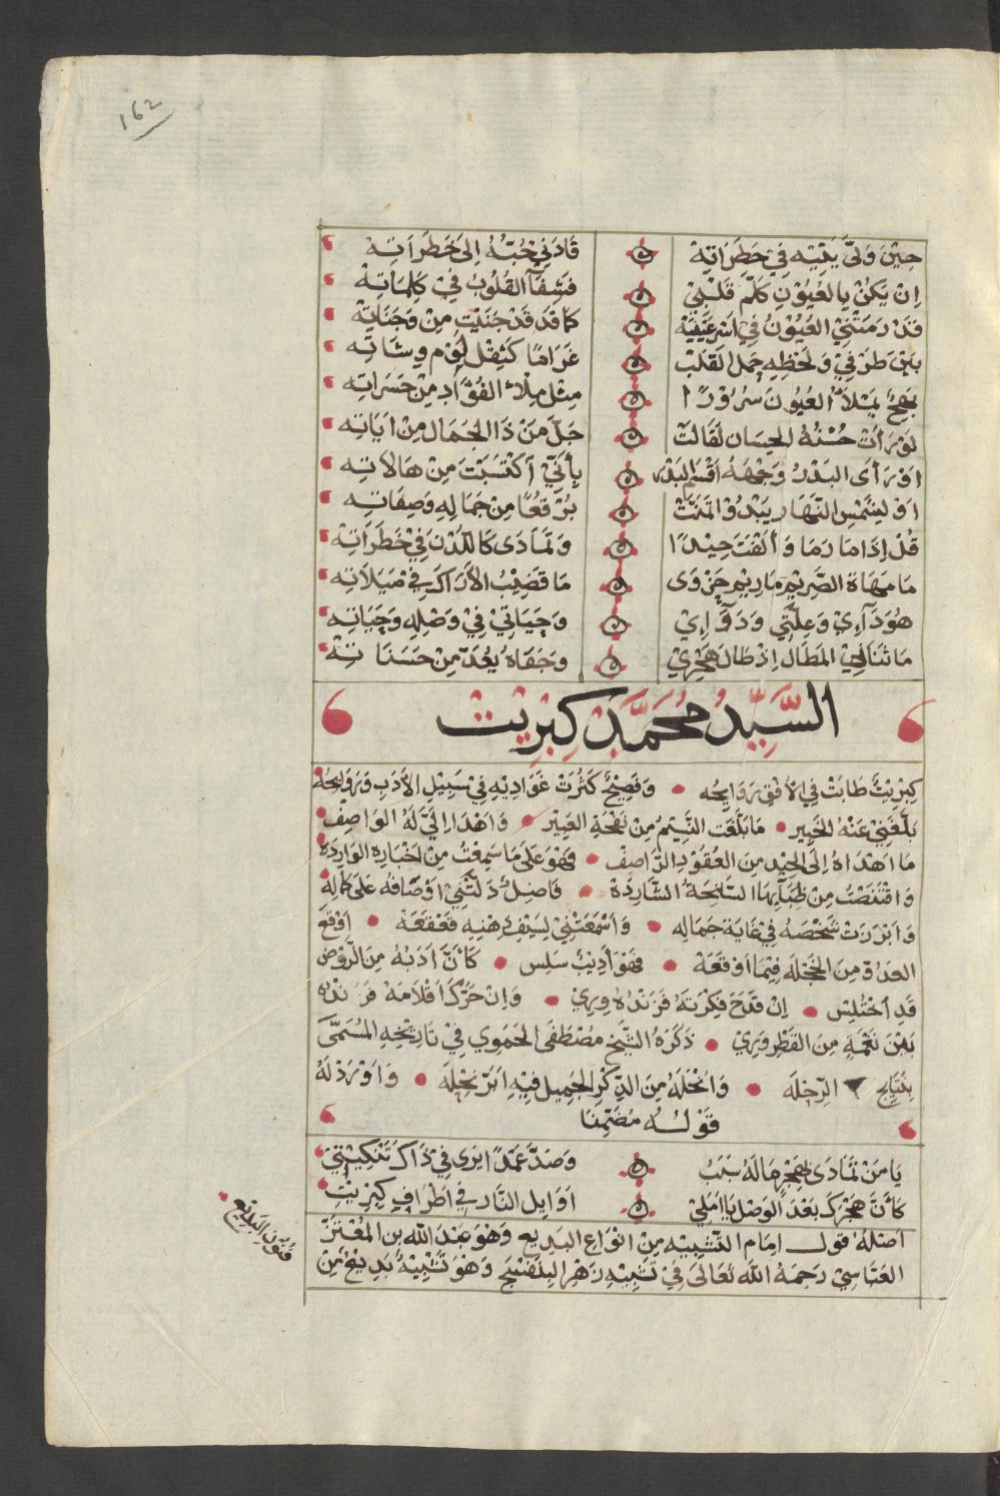 162
حِيْنَ وَلَّى يَتِيْه فِيْ خَطَرَاتِهْ قَادَنِيْ حُبُّهُ اِلىَ خَطَرَاتِهْ
اِنْ يَكُنْ بِالعُيُوْنِ كَلَّمَ قَلْبِيْ فَشِفَآ القُلُوْبِ فِيْ كَلِمَاتِهْ
قَدْ رَمَتْنِيْ العُيُوْنُ فِيْ كَمَا قَدْ جَنَيْتُ مِنْ وَجَنَاتِهْ
بَيْنَ طَرْفِيْ وَلَحْظِهِ حمل القَلْبُ غَرَامًا كَثِقْلِ لَوْمِ وِشَاتِه
بَهِجٌ يَمْلَأُ العُيُوْنَ سُرُوْرًا مِثْلَ مِلْأِ الفُؤَادِ مِنْ حَسَرَاتِه
لَوْ رَأَتْ حُسْنُهُ الحِسَان لَقَالَتْ جَلَّ مَنْ ذَا الجَمَال مِنْ آيَاتِه
اَوْ رَأَى البَدْرُ وَجْهَهُ اَقْسَمَ البَدْر بِأَنِّيْ اكْتَسَبْتُ مِنْ هَالَاتِه
اَوْ لِشَمْسِ النَّهَارِ يَبْدُوْ لَتَمَنَّتْ بُرْقُعًا مِنْ جَمَالِهِ وَصِفَاتِه
قُلْ اِذَا مَا رَمَا وَأَلْفَتَ جِيْدًا وَتَمَادَى كَاللّدْنِ فِيْ خَطَرَاتِهْ
مَا مَهَاةُ الصَّرِيْمِ مَا رِيْم حَزْوَى مَا قَضِيْبُ الأَرَاكِ فِيْ مَيَلَاتِه
هُوَ دَآءِيْ وَعِلَّتِي وَدَوَآءِيْ وَحَيَاتِيْ فِيْ وَصْلِهِ وَحَيَاتِه
مَا ثَنَا المَطَال اِذْ طَالَ هَجْرِيْ وَجَفَاهُ يُعَدُّ مِنْ حَسَنَاتِهْ
السَّيِّدُ مُحَمَّدْ كِبْرِيْت
كِبْرِيْتٌ طَابَتْ فِي الأُفُقِ رَوَايِحُه • وَفَصِيْحٌ كَثُرَتْ غَوَادِيْهِ فِيْ سَبِيْلِ الأَدَبِ وَرَوَايِحُهُ
بَلَّغَنِيْ عَنْهُ الخَبِير • مَا بَلَّغَتِ النَّسِيْمُ مِنْ نَفْحَةِ العَبِيْر • وَاَهْدَا اِلَيَّ لَهُ الوَاصِفْ •
مَا اَهْدَاهُ اِلَى الجِيْدِ مِنَ العُقُوْدِ الرَّاصِف • فَهْوَ عَلَى مَا سَمِعْتُ مِنْ اَخْبَارِهِ الوَارِدَة
وَاقْتَنَصْتُ مِنْ ظِبَآيِهَا السَّانِحَةِ الشَّارِدَة • فَاضِلٌ دَلَّتْنِيْ اَوْصَافُه عَلَى كَمَالِهْ
وَاَبْرَزَتْ شَخْصَهُ فِيْ غَايَةِ جَمَالِه • وَاَسْمَعَتْنِيْ لِسَيْفِ ذِهْنِهِ قَعْقَعَهْ • اَوْقَعَ
العَدُوّ مِنَ الخَجْلَه فِيْمَا اَوْقَعَهْ • فَهْوَ اَدِيْبٌ سَلِس • كَأَنَّ اَدَبَهُ مِنَ الرَّوْضِ
قَدِ اخْتُلِسْ • اِنْ قَدَحَ فِكْرَتَهُ فَزَنْدُهُ وِرِيْ • وَاِنْ حَرَّكَ اَقْلَامَهُ فَزَنْدُهُ
بَيْنَ نَغْمَةٍ مِنَ القَطْرِ وَرِيْ • ذَكَرَهُ الشَّيْخ مُصْطَفَى الحَمَوِي فِيْ تَارِيْخِهِ المُسَمَّى
بِنَتَايِجِ الرِّحْلَه • وَانْحَلَهُ مِنَ الذِّكْرِ الجَمِيلِ فِيْهِ اَبَرَّ نِحْلَه • وَاَوْرَدَ لَهُ
قَوْلـهُ مُضَمِّنَا
يَا مَنْ تَمَادَى بِهَجْرٍ مَا لَهُ سَبَبُ وَصَدَّ عَمْدًا يَرَى فِيْ ذَاكَ تَنْكِيْتِيْ
كَأَنَّ هَجْرَكَ بَعْدَ الوَصْلِ يَا اَمَلِيْ اَوَايِل النَّارِ فِيْ اَطْرَافِ كِبْرِيْتِ
اَصْلهُ قول اِمَامِ التَّشْبِيْهِ مِنْ اَنْوَاعِ البَدِيعِ وَهْوَ عَبْدُ اللّٰه بن المُعْتَزّ
العَبَّاسِيْ رَحِمَهُ اللّه تَعَالَى فِيْ تَشْبِيْهِ زَهْرِ البَنَفْسَج وَهْوَ تَشْبِيْهٌ بَدِيْعٌ مِنْ
فُنُوْنِ البَدِيْعِ